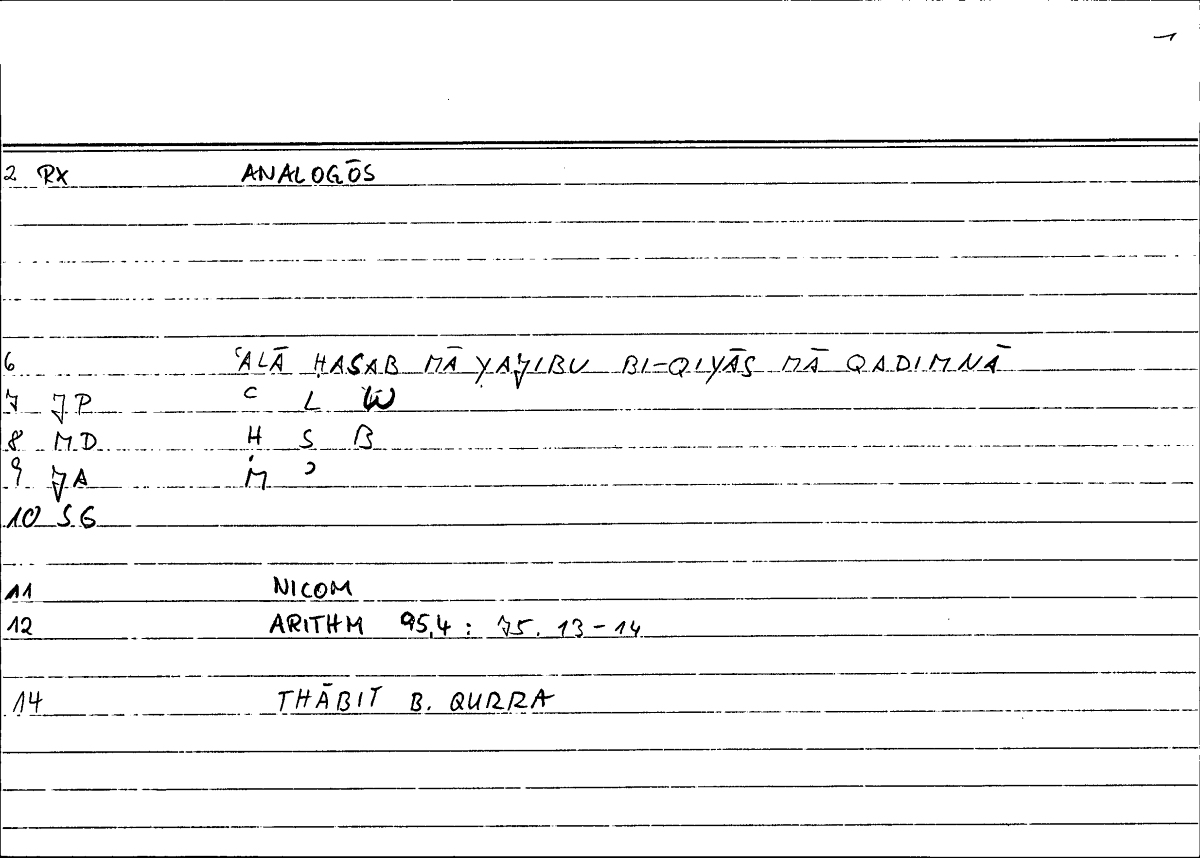 1
2 RX ANALOGŌS
6 ʿALĀ ḤASAB MĀ YAJIBU BI-QIYĀS MĀ QADIMNĀ
7 JP ʿ L W
8 MD Ḥ S B
9 JA M ʾ
10 SG
11 NICOM
12 ARITHM 95,4 : 75. 13-14
14 THĀBIT B. QURRA